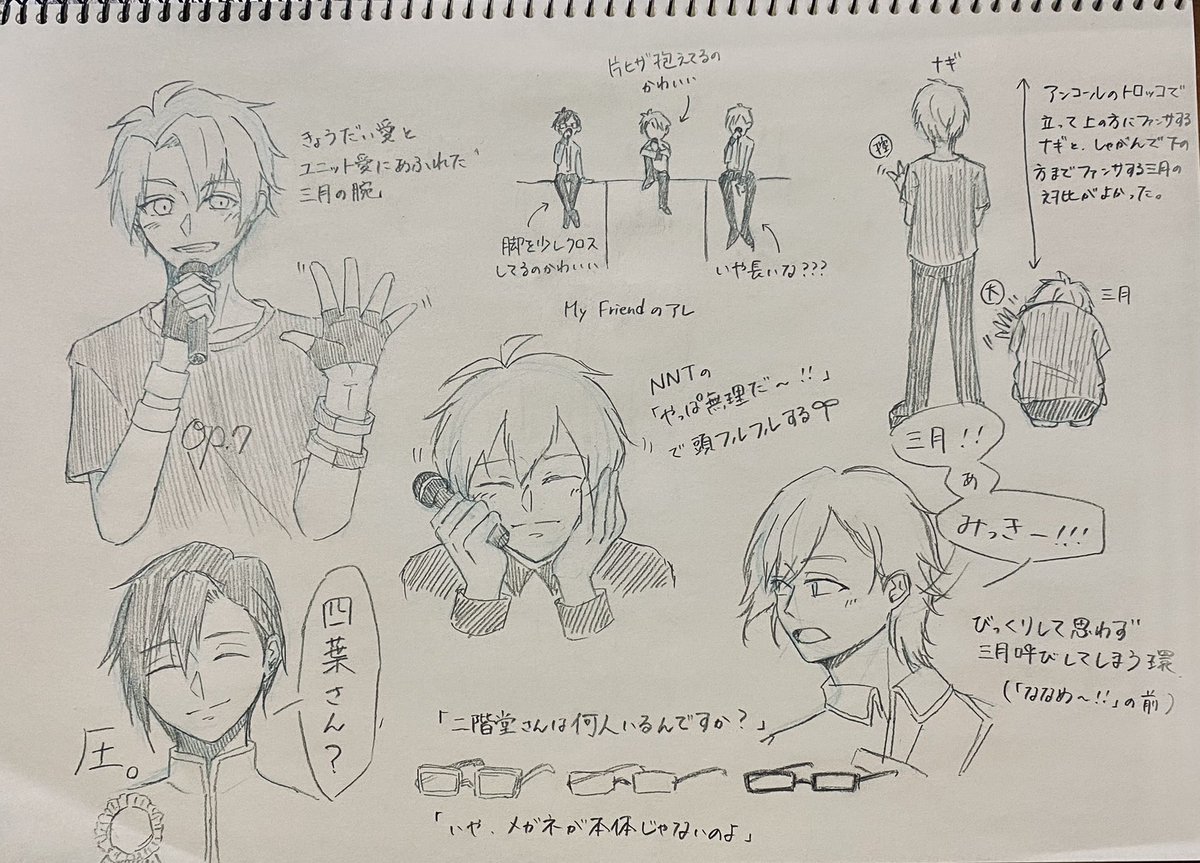 きょうだい愛と
ユニット愛にあふれた
三月の腕
Op.7
片ヒザ抱えてるの
かわいい
脚を少しクロス
してるのかわいい
いや長いな???
My Friendのアレ
ナギ
アンコールのトロッコで
立って上の方にファンサする
ナギと、しゃがんで下の
方までファンサする三月の
対比がよかった。
三月
NNTの
「やっぱ無理だ〜!!」
で頭フルフルする
三月!!
あ
みっきー!!!
びっくりして思わず
三月呼びしてしまう環
(「ななめ〜!!」の前)
四葉さん?
圧。
「二階堂さんは何人いるんですか?」
「いや、メガネが本体じゃないのよ」